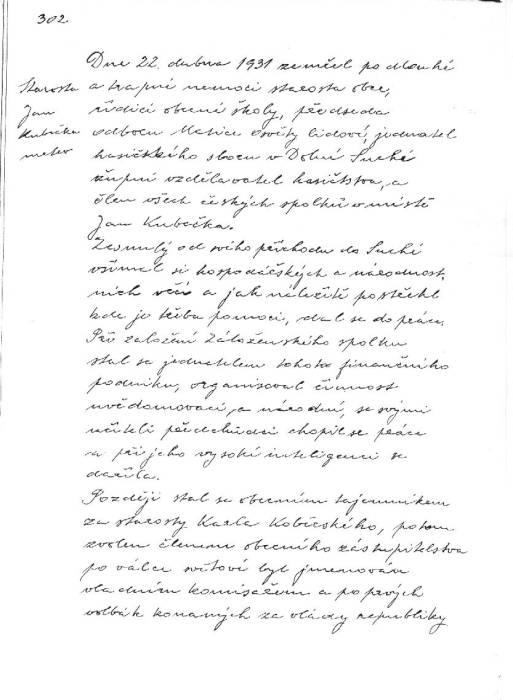 302.
Starosta
Jan
Kubečka
mrtev
Dne 22. dubna 1931 zemřel po dlouhé
a trapné nemoci starosta obce,
řídící obecné školy, předseda
odboru Matice Osvěty lidové, jednatel
hasičského sboru v Dolní Suché
župní vzdělavatel hasičstva, a
člen všech českých spolků v místě
Jan Kubečka.
Zesnulý od svého příchodu do Suché
všímal si hospodářských a národnost-
ních věcí a jak náležitě postřehl
kde je třeba pomoci, dal se do práce.
Při založení Záloženského spolku
stal se jednatelem tohoto finančního
podniku, organisoval činnost
uvědomovací, a národní, se svými
učiteli předchůdci chopil se práce
a při jeho vysoké inteligenci se
dařila.
Později stal se obecním tajemníkem
za starosty Karla Kobierského, potom
zvolen členem obecního zástupitelstva
po válce světové byl jmenován
vládním komisařem a po prvých
volbách konaných za vlády republiky